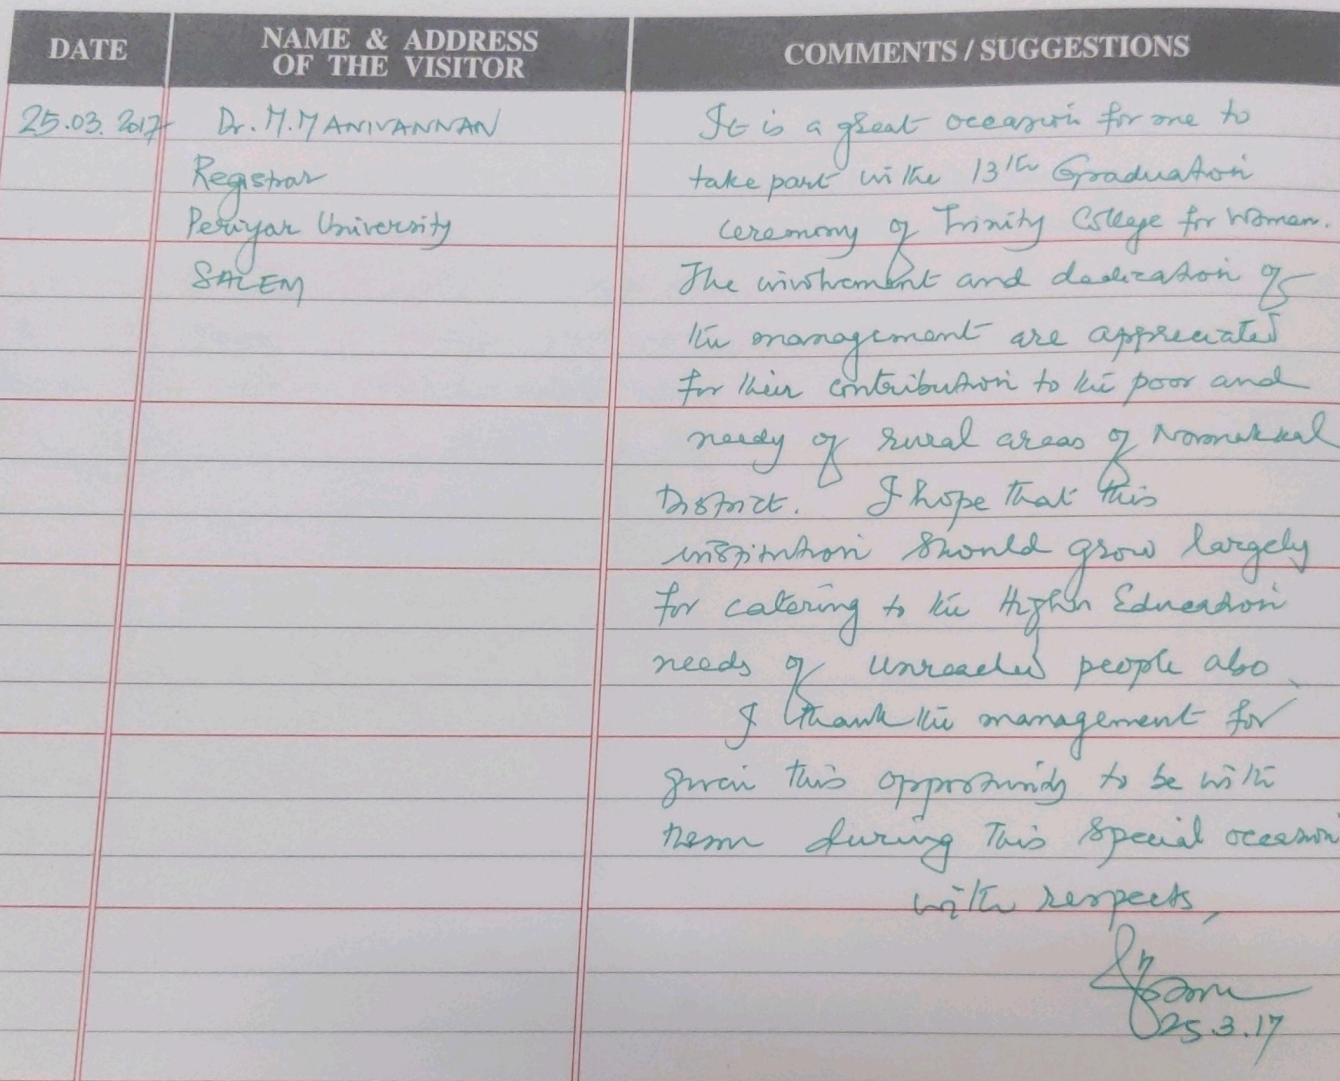 DATE
NAME & ADDRESS
OF THE VISITOR
COMMENTS / SUGGESTIONS
25.03.2017
Dr. M. MANIVANNAN
Registrar
Periyar University
SALEM
It is a great occasion for me to
take part in the 13th Graduation
ceremony of Trinity College for Women.
The involvement and dedication of
the management are appreciated
for their contribution to the poor and
needy of rural areas of Namakkal
District. I hope that this
institution should grow largely
for catering to the Higher Education
needs of unreached people also.
I thank the management for
given this opportunity to be with
them during this special occasion
with respects,
25.3.17